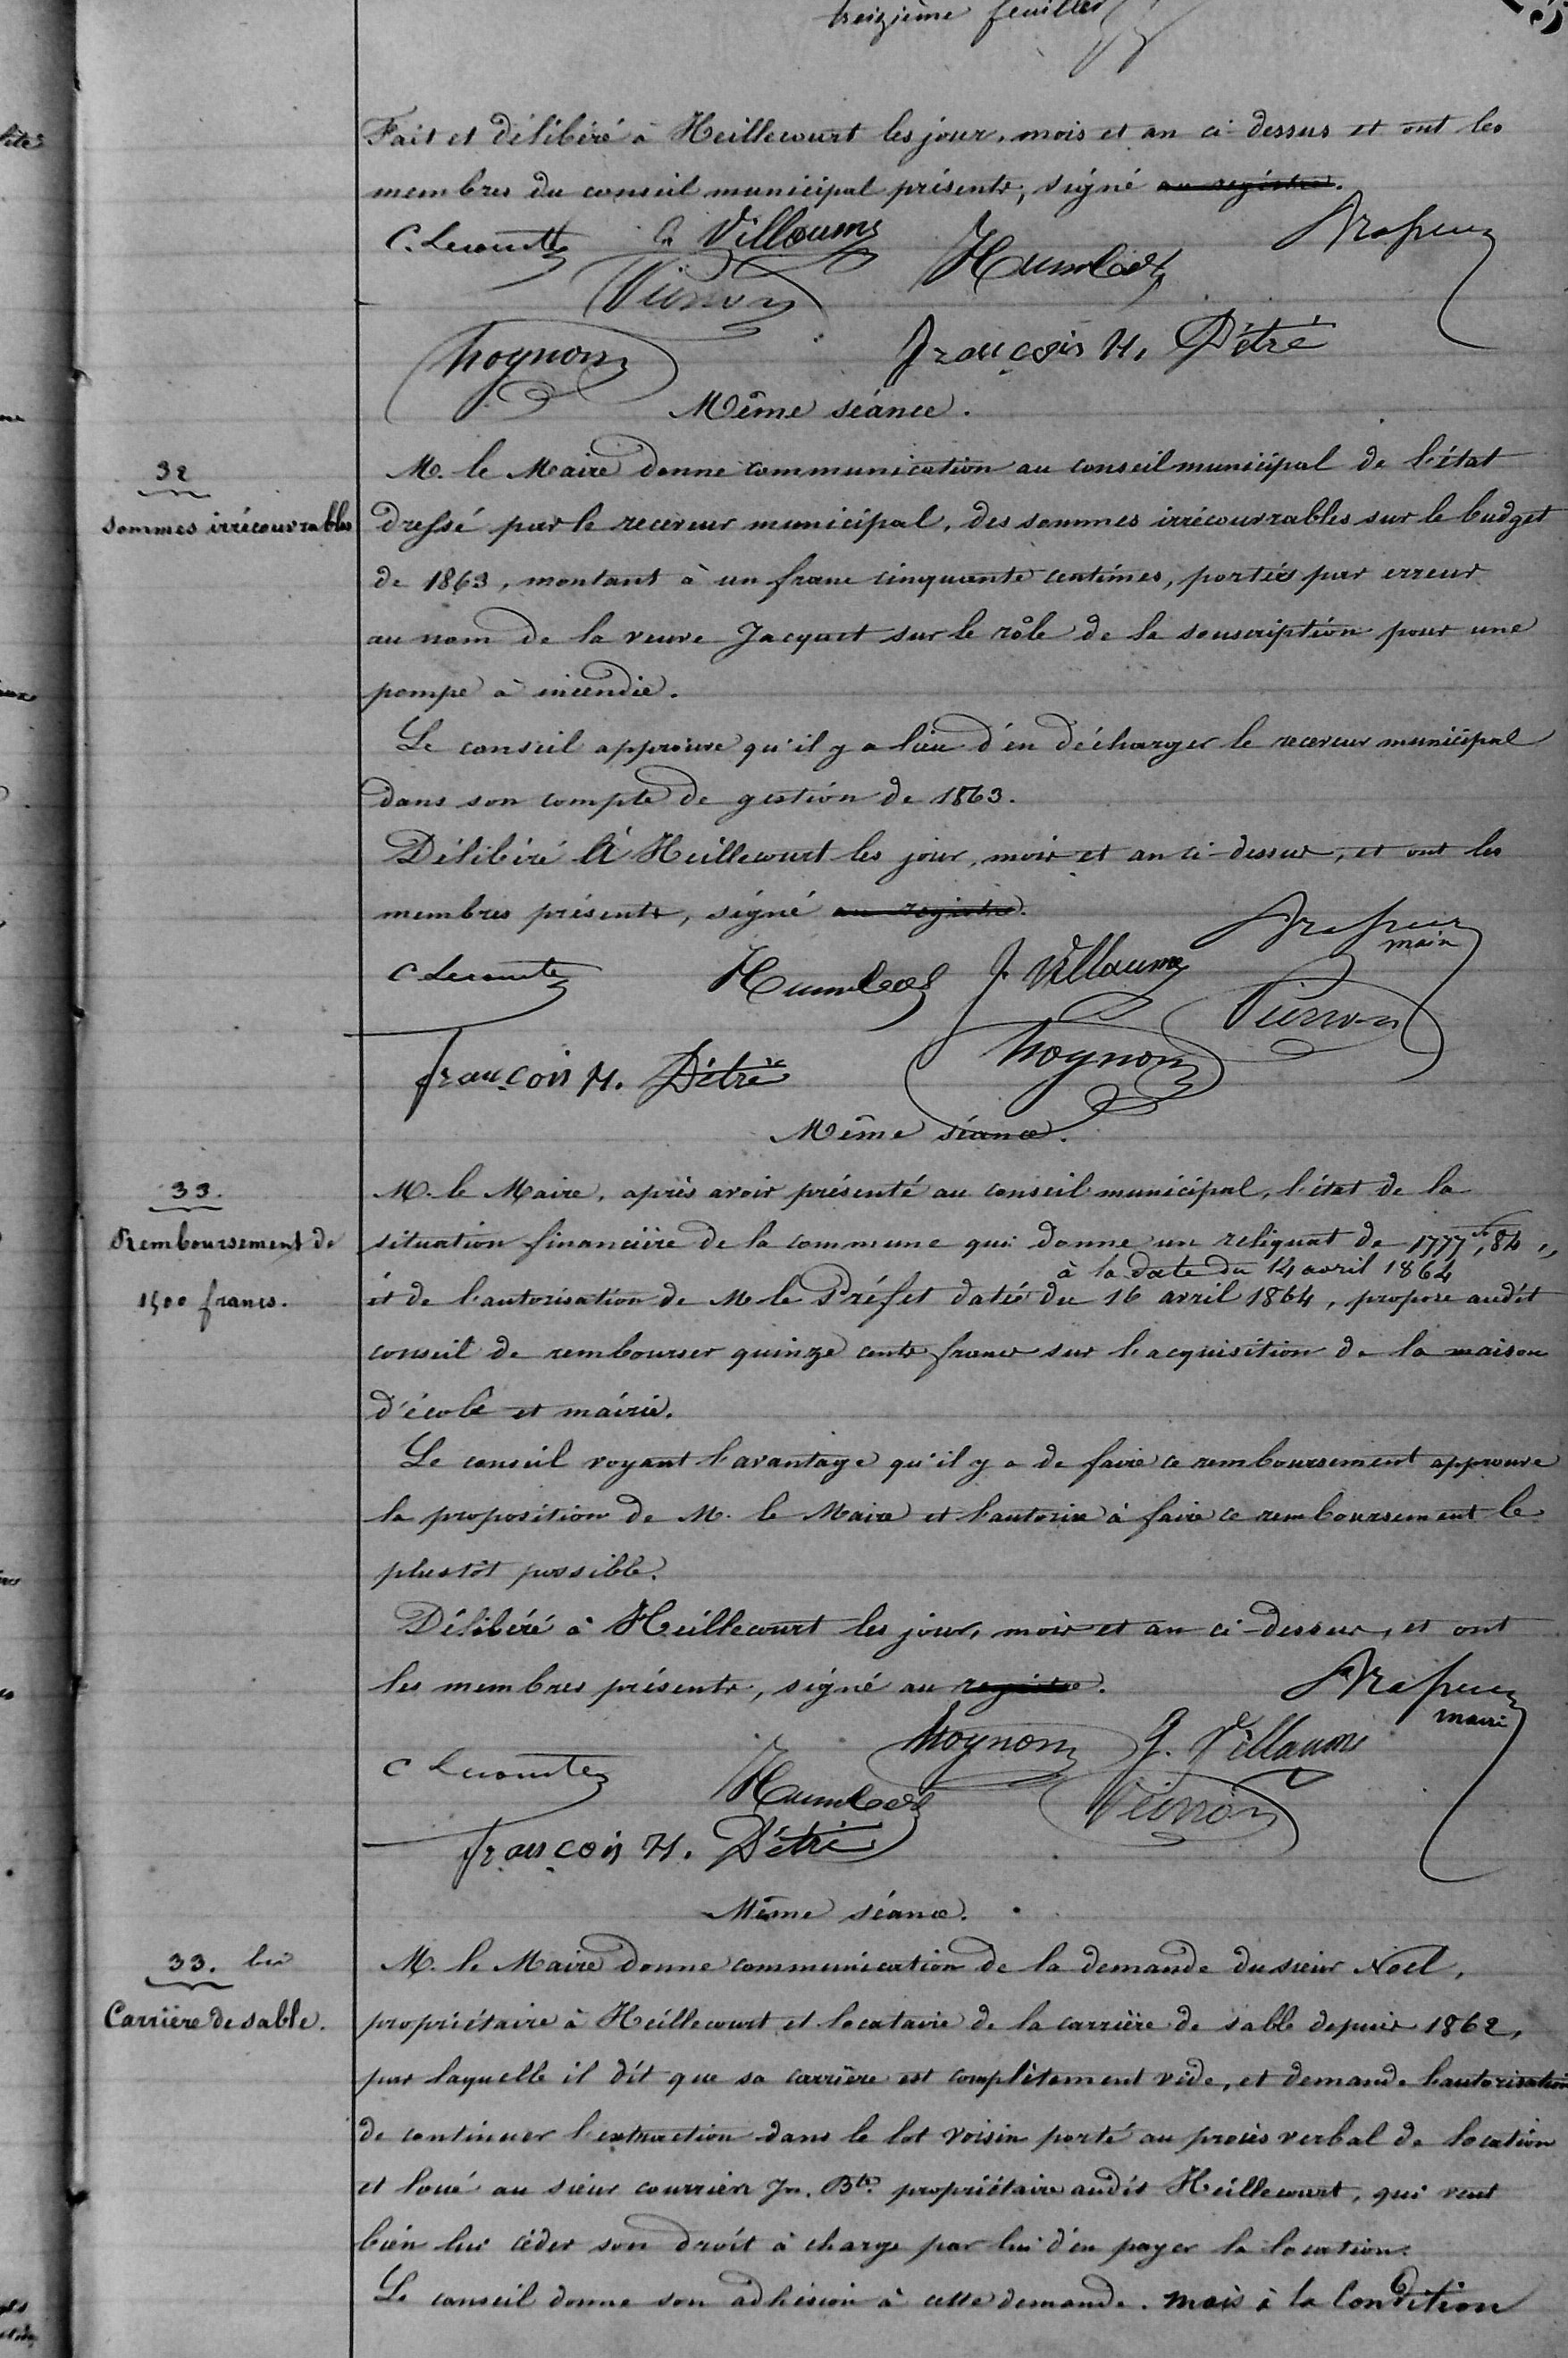 treizième feuillet
Fait et délibéré à Heillecourt les jour, mois et an ci-dessus et ont les
membres du conseil municipal présents, signé au registre.
C. Lecomte G Villaume Humbert
Pierron
hognon François H. Dètré
Même séance.
32
Sommes irrécouvrables
M. le Maire donne communication au conseil municipal de l'état
dressé par le receveur municipal, des sommes irrécouvrables sur le budget
de 1863, montant à un franc cinquante centimes, portées par erreur
au nom de la veuve Jacquot sur le rôle de la souscription pour une
pompe à incendie.
Le conseil approuve qu'il y a lieu d'en décharger le receveur municipal
dans son compte de gestion de 1863.
Délibéré à Heillecourt les jour, mois et an ci-dessus, et ont les
membres présents, signé au registre.
maire
C Lecomte Humbert J. Villaume
Pierron
François H. Dètré hognon
Même séance.
33.
Remboursement de
1500 francs.
M. le Maire, après avoir présenté au conseil municipal, l'état de la
situation financière de la commune qui donne un reliquat de 1777f,84 ,,
à la date du 14 avril 1864
et de l'autorisation de M le Préfet datée du 16 avril 1864, propose audit
conseil de rembourser quinze cents francs sur l'acquisition de la maison
d'école et mairie.
Le conseil voyant l'avantage qu'il y a de faire ce remboursement approuve
la proposition de M. le Maire et l'autorise à faire ce remboursement le
plustôt possible.
Délibéré à Heillecourt les jour, mois et an ci-dessus, et ont
les membres présents, signé au registre.
maire
hognon G. Villaume
C Lecomte Humbert Pierron
François H. Dètré
Même séance.
33. bis
Carrière de sable.
M. le Maire donne communication de la demande du sieur Noel,
propriétaire à Heillecourt et locataire de la carrière de sable depuis 1862,
par laquelle il dit que sa carrière est complètement vide, et demande l'autorisation
de continuer l'extraction dans le lot voisin porté au procès verbal de location
et loué au sieur courrier Jn. Bte. propriétaire audit Heillecourt, qui veut
bien lui céder son droit à charge par lui d'en payer la location.
Le conseil donne son adhésion à cette demande. mais à la Condition